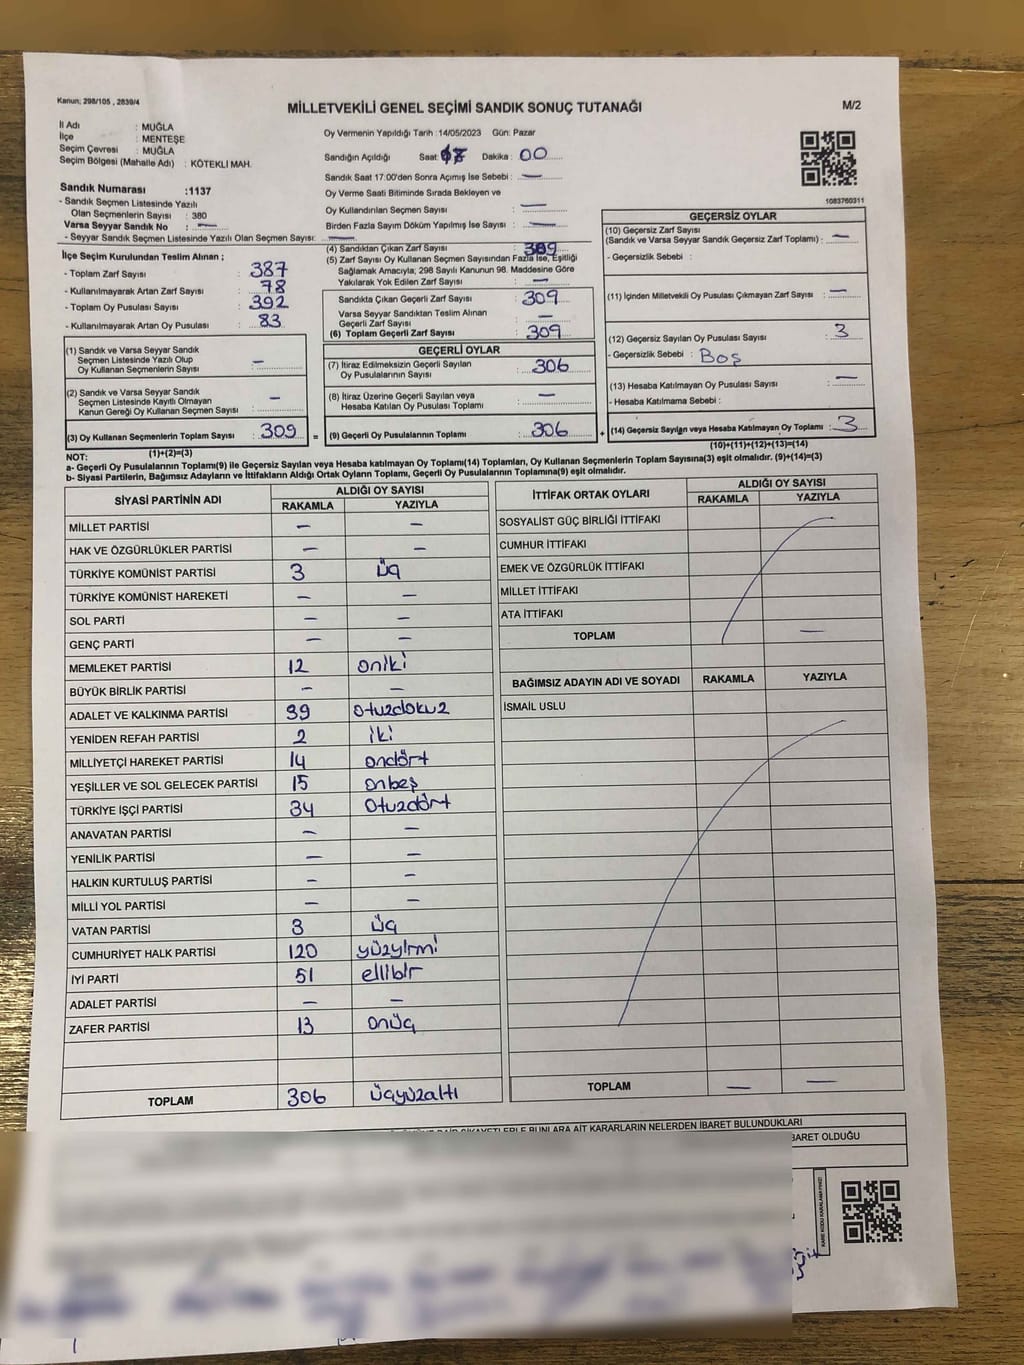 Kanun; 298/105 , 2839/4
MİLLETVEKİLİ GENEL SEÇİMİ SANDIK SONUÇ TUTANAĞI
M/2
İl Adı : MUĞLA
İlçe : MENTEŞE
Seçim Çevresi : MUĞLA
Seçim Bölgesi (Mahalle Adı) : KÖTEKLİ MAH.
Sandık Numarası :1137
- Sandık Seçmen Listesinde Yazılı
Olan Seçmenlerin Sayısı : 380
Varsa Seyyar Sandık No : —
- Seyyar Sandık Seçmen Listesinde Yazılı Olan Seçmen Sayısı: —
Oy Vermenin Yapıldığı Tarih :14/05/2023 Gün: Pazar
Sandığın Açıldığı Saat: Dakika : 00
Sandık Saat 17:00'den Sonra Açımış İse Sebebi : —
Oy Verme Saati Bitiminde Sırada Bekleyen ve
Oy Kullandırılan Seçmen Sayısı : —
Birden Fazla Sayım Döküm Yapılmış İse Sayısı : —
1083760311
İlçe Seçim Kurulundan Teslim Alınan ;
- Toplam Zarf Sayısı : 387
- Kullanılmayarak Artan Zarf Sayısı : 78
- Toplam Oy Pusulası Sayısı : 392
- Kullanılmayarak Artan Oy Pusulası : 83
(1) Sandık ve Varsa Seyyar Sandık
Seçmen Listesinde Yazılı Olup
Oy Kullanan Seçmenlerin Sayısı : —
(2) Sandık ve Varsa Seyyar Sandık
Seçmen Listesinde Kayıtlı Olmayan
Kanun Gereği Oy Kullanan Seçmen Sayısı : —
(3) Oy Kullanan Seçmenlerin Toplam Sayısı : 309
(1)+(2)=(3)
(4) Sandıktan Çıkan Zarf Sayısı : 309
(5) Zarf Sayısı Oy Kullanan Seçmen Sayısından Fazla İse, Eşitliği
Sağlamak Amacıyla; 298 Sayılı Kanunun 98. Maddesine Göre
Yakılarak Yok Edilen Zarf Sayısı : —
Sandıkta Çıkan Geçerli Zarf Sayısı : 309
Varsa Seyyar Sandıktan Teslim Alınan
Geçerli Zarf Sayısı : —
(6) Toplam Geçerli Zarf Sayısı : 309
GEÇERLİ OYLAR
(7) İtiraz Edilmeksizin Geçerli Sayılan
Oy Pusulalarının Sayısı : 306
(8) İtiraz Üzerine Geçerli Sayılan veya
Hesaba Katılan Oy Pusulası Toplamı : —
= (9) Geçerli Oy Pusulalarının Toplamı : 306 +
GEÇERSİZ OYLAR
(10) Geçersiz Zarf Sayısı
(Sandık ve Varsa Seyyar Sandık Geçersiz Zarf Toplamı) : —
- Geçersizlik Sebebi :
(11) İçinden Milletvekili Oy Pusulası Çıkmayan Zarf Sayısı : —
(12) Geçersiz Sayılan Oy Pusulası Sayısı : 3
- Geçersizlik Sebebi : Boş
(13) Hesaba Katılmayan Oy Pusulası Sayısı : —
- Hesaba Katılmama Sebebi :
(14) Geçersiz Sayılan veya Hesaba Katılmayan Oy Pusulası Toplamı : 3
(10)+(11)+(12)+(13)=(14)
NOT:
a- Geçerli Oy Pusulalarının Toplamı(9) ile Geçersiz Sayılan veya Hesaba katılmayan Oy Pusulası Toplamı(14) Toplamları, Oy Kullanan Seçmenlerin Toplam Sayısına(3) eşit olmalıdır. (9)+(14)=(3)
b- Siyasi Partilerin, Bağımsız Adayların ve İttifakların Aldığı Ortak Oyların Toplamı, Geçerli Oy Pusulalarının Toplamına(9) eşit olmalıdır.
SİYASİ PARTİNİN ADI ALDIĞI OY SAYISI
RAKAMLA YAZIYLA
MİLLET PARTİSİ — —
HAK VE ÖZGÜRLÜKLER PARTİSİ — —
TÜRKİYE KOMÜNİST PARTİSİ 3 üç
TÜRKİYE KOMÜNİST HAREKETİ — —
SOL PARTİ — —
GENÇ PARTİ — —
MEMLEKET PARTİSİ 12 oniki
BÜYÜK BİRLİK PARTİSİ — —
ADALET VE KALKINMA PARTİSİ 39 otuzdokuz
YENİDEN REFAH PARTİSİ 2 iki
MİLLİYETÇİ HAREKET PARTİSİ 14 ondört
YEŞİLLER VE SOL GELECEK PARTİSİ 15 onbeş
TÜRKİYE İŞÇİ PARTİSİ 34 otuzdört
ANAVATAN PARTİSİ — —
YENİLİK PARTİSİ — —
HALKIN KURTULUŞ PARTİSİ — —
MİLLİ YOL PARTİSİ — —
VATAN PARTİSİ 3 üç
CUMHURİYET HALK PARTİSİ 120 yüzyirmi
İYİ PARTİ 51 ellibir
ADALET PARTİSİ — —
ZAFER PARTİSİ 13 onüç
TOPLAM 306 üçyüzaltı
İTTİFAK ORTAK OYLARI ALDIĞI OY SAYISI
RAKAMLA YAZIYLA
SOSYALİST GÜÇ BİRLİĞİ İTTİFAKI
CUMHUR İTTİFAKI
EMEK VE ÖZGÜRLÜK İTTİFAKI
MİLLET İTTİFAKI
ATA İTTİFAKI
TOPLAM —
BAĞIMSIZ ADAYIN ADI VE SOYADI RAKAMLA YAZIYLA
İSMAİL USLU
TOPLAM — —
BUNLARA AİT KARARLARIN NELERDEN İBARET BULUNDUKLARI
BARET OLDUĞU